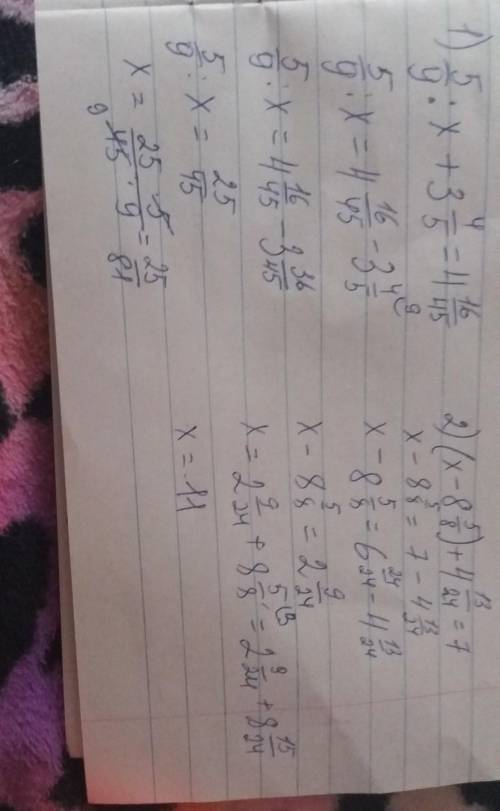 1) 5/9 : x + 3 4/5 = 4 16/45
5/9 : x = 4 16/45 - 3 4/5 (9
5/9 : x = 4 16/45 - 3 36/45
5/9 : x = 25/45
x = 25 · 5 / 45 · 9 = 25/81
9
2) (x - 8 5/8) + 4 13/24 = 7
x - 8 5/8 = 7 - 4 13/24
x - 8 5/8 = 6 24/24 - 4 13/24
x - 8 5/8 = 2 9/24
x = 2 9/24 + 8 5/8 (3 = 2 9/24 + 8 15/24
x = 11